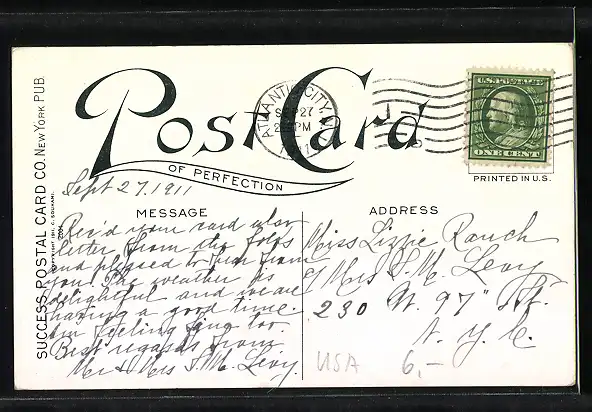 Post Card
OF PERFECTION
ATLANTIC CITY, N.J.
SEP 27
2 PM
1911
U.S. POSTAGE
ONE CENT
PRINTED IN U.S.
SUCCESS POSTAL CARD CO. NEW YORK PUB.
COPYRIGHT 1911.
Sept 27. 1911
MESSAGE
Rec'd your card also
letter from the folks
and pleased to hear from
you. The weather is
delightful and we are
having a good time.
Am feeling fine too.
Best regards from
Mr & Mrs S.M. Levy.
ADDRESS
Miss Lizzie Rauch
c/ Mrs S. M. Levy
230 W. 97" St.
N. Y. C.
USA 6,-